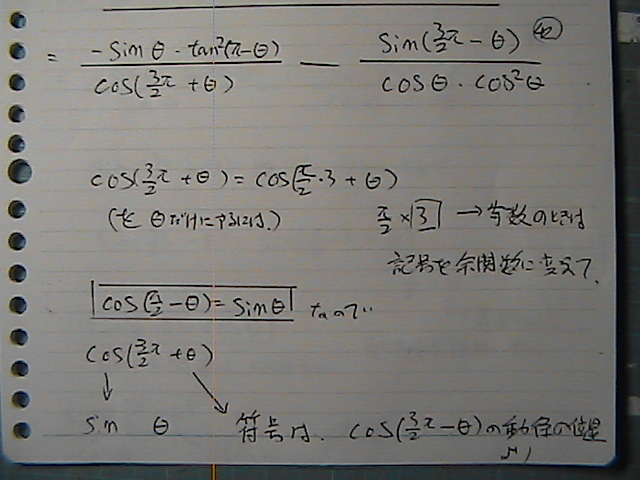 = -sinθ・tan²(π-θ) / cos(3/2π+θ) - sin(3/2π-θ) / cosθ・cos²θ
cos(3/2π+θ) = cos(π/2・3+θ)
(を θだけにするには.) π/2×3 → 奇数のときは
記号を余関数に変えて.
cos(π/2-θ)=sinθ なので..
cos(3/2π+θ)
↓ ↘
sin θ 符号は. cos(3/2π-θ)の動径の位置